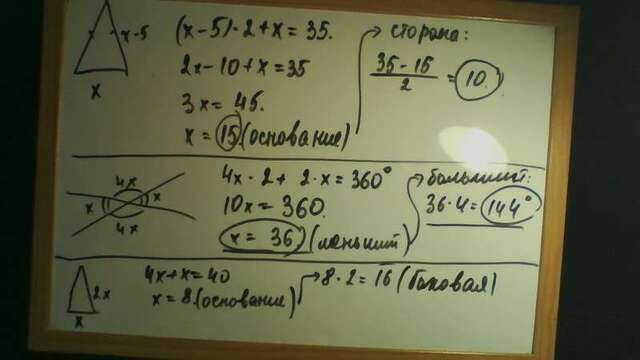 x-5
x
(x-5)·2+x=35.
2x-10+x=35
3x=45.
x=15.(основание)
сторона:
35-15
2
=10.
4x
x
x
4x
4x·2+2·x=360°
10x=360.
x=36 (меньший)
больший:
36·4=144°
2x
x
4x+x=40
x=8.(основание)
8·2=16 (боковая)